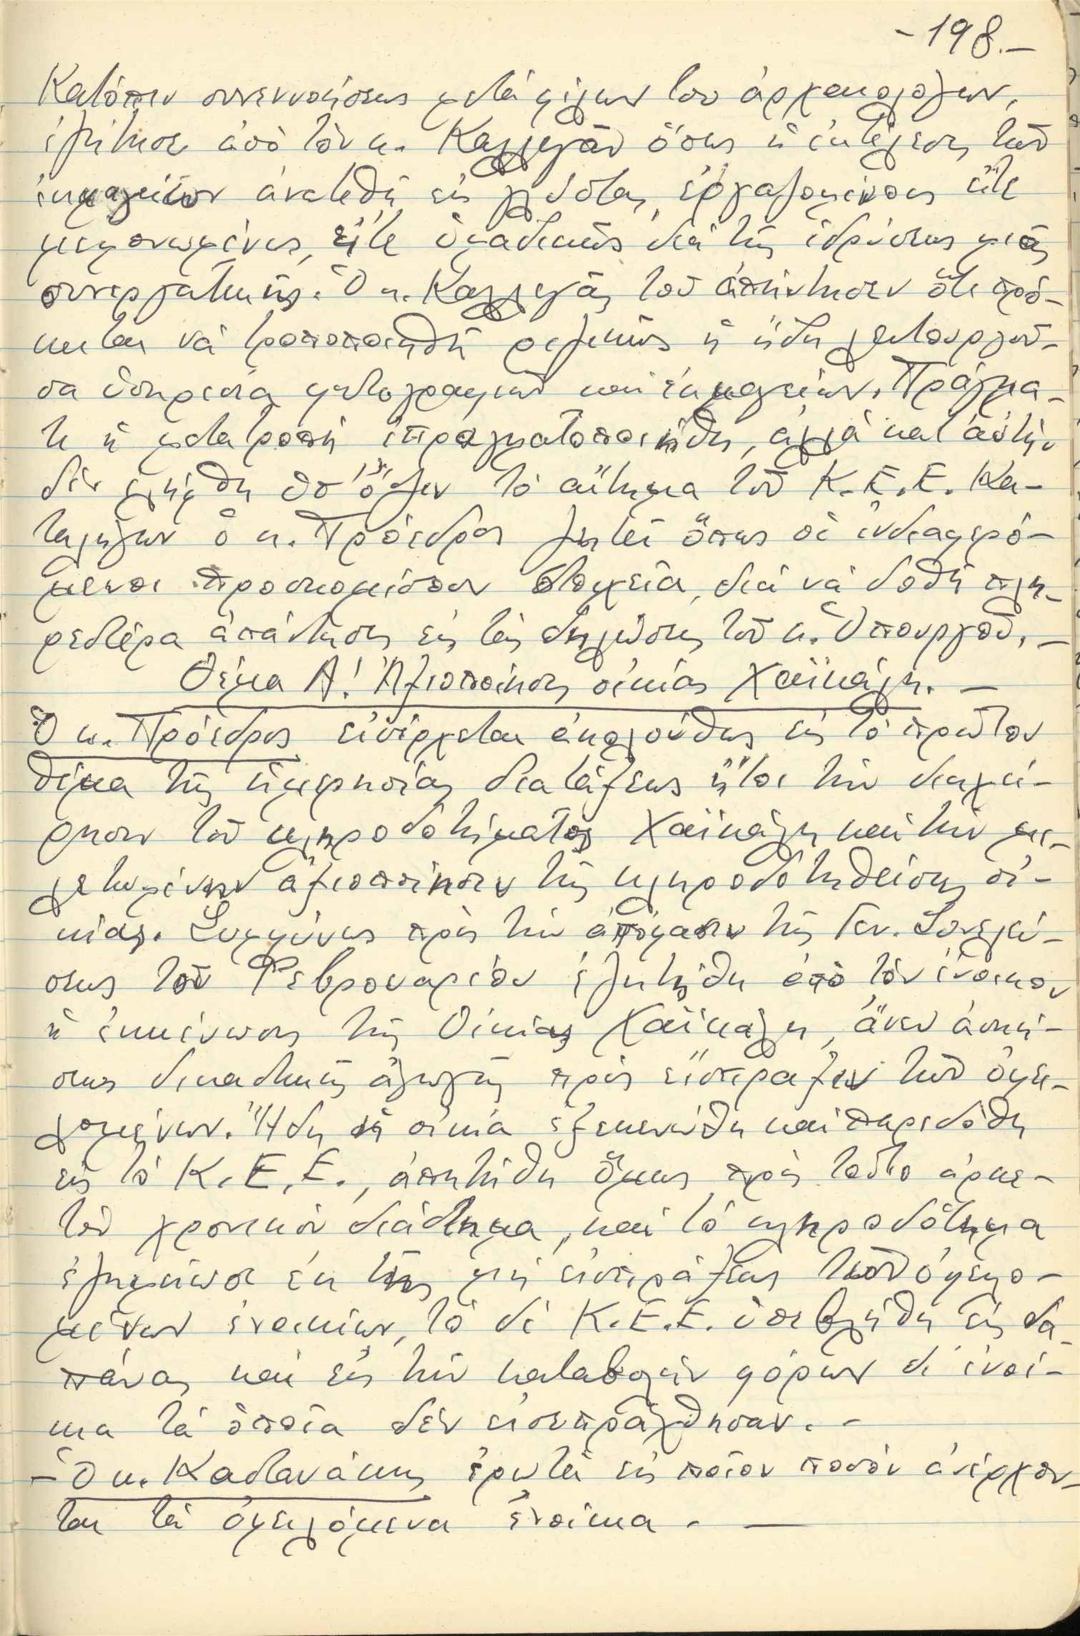 -198.-
Κατόπιν συνεννοήσεως μετά φίλων του ἀρχαιολόγων,
ἐζήτησε ἀπό τόν κ. Καλλιγᾶν ὅπως ἡ ἐκτέλεσις τῶν
ἐκμαγείων ἀνατεθῇ εἰς γλύπτας, ἐργαζομένους εἴτε
μεμονωμένως, εἴτε ὁμαδικῶς διά τῆς ἱδρύσεως μιᾶς
συνεργατικῆς. Ὁ κ. Καλλιγᾶς τοῦ ἀπήντησεν ὅτι πρό-
κειται νά τροποποιηθῇ ριζικῶς ἡ ἤδη λειτουργοῦ-
σα ὑπηρεσία φωτογραφιῶν καί ἐκμαγείων. Πράγμα-
τι ἡ μετατροπή ἐπραγματοποιήθη, ἀλλά κατ' αὐτήν
δέν ἐλήφθη ὑπ' ὄψιν τό αἴτημα τοῦ Κ.Ε.Ε. Κα-
ταλήγων ὁ κ. Πρόεδρος ζητεῖ ὅπως οἱ ἐνδιαφερό-
μενοι προσκομίσουν στοιχεῖα, διά νά δοθῇ πλη-
ρεστέρα ἀπάντησις εἰς τάς δηλώσεις τοῦ κ. Ὑπουργοῦ. -
Θέμα Α! Ἀξιοποίησις οἰκίας Χαϊκάλη. -
Ὁ κ. Πρόεδρος εἰσέρχεται ἀκολούθως εἰς τό πρῶτον
θέμα τῆς ἡμερησίας διατάξεως ἤτοι τήν διαχεί-
ρησιν τοῦ κληροδοτήματος Χαϊκάλη καί τήν με-
λετωμένην ἀξιοποίησιν τῆς κληροδοτηθείσης οἰ-
κίας. Συμφώνως πρός τήν ἀπόφασιν τῆς Γεν. Συνελεύ-
σεως τοῦ Φεβρουαρίου ἐζητήθη ἀπό τόν ἔνοικον
ἡ ἐκκένωσις τῆς Οἰκίας Χαϊκάλη, ἄνευ ἀσκή-
σεως δικαστικῆς ἀγωγῆς πρός εἴσπραξιν τῶν ὀφει-
λομένων. Ἤδη ἡ οἰκία ἐξεκενώθη καί παρεδόθη
εἰς τό Κ.Ε.Ε., ἀπητήθη ὅμως πρός τοῦτο ἀρκε-
τόν χρονικόν διάστημα, καί τό κληροδότημα
ἐζημίωσε ἐκ τῆς μή εἰσπράξεως τῶν ὀφειλο-
μένων ἐνοικίων, τό δέ Κ.Ε.Ε. ὑπεβλήθη εἰς δα-
πάνας καί εἰς τήν καταβολήν φόρων δι' ἐνοί-
κια τά ὁποῖα δέν εἰσεπράχθησαν. -
- Ὁ κ. Καστανάκης ἐρωτᾷ εἰς ποῖον ποσόν ἀνέρχον-
ται τά ὀφειλόμενα ἐνοίκια. -